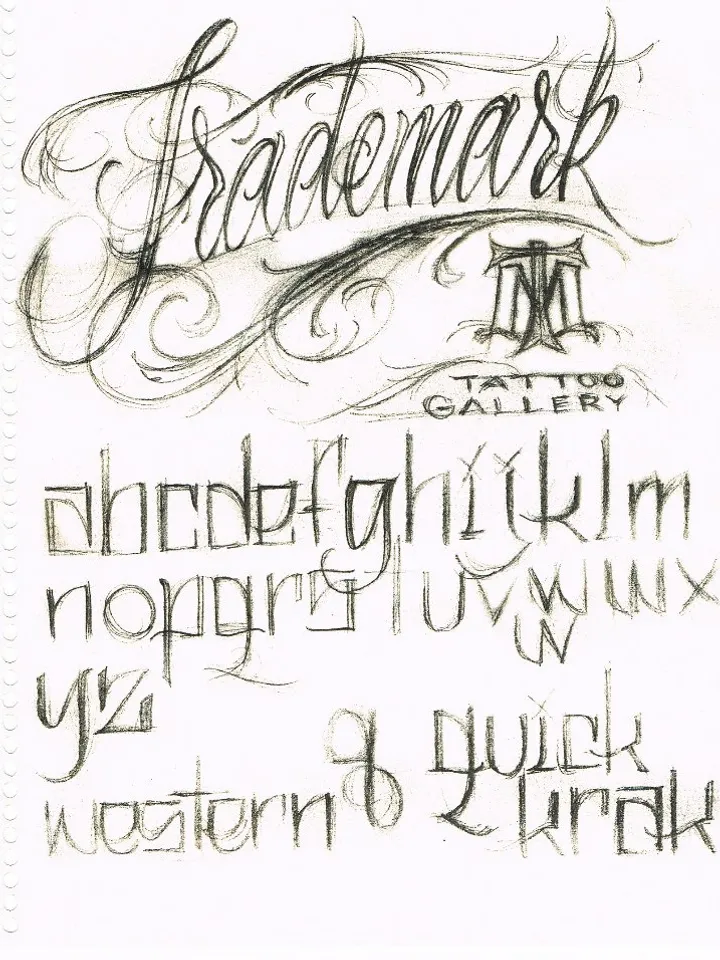 Trademark
TM
TATTOO
GALLERY
abcdefghijklm
nopqrstuvwwx
w
yz
g quick
western krak